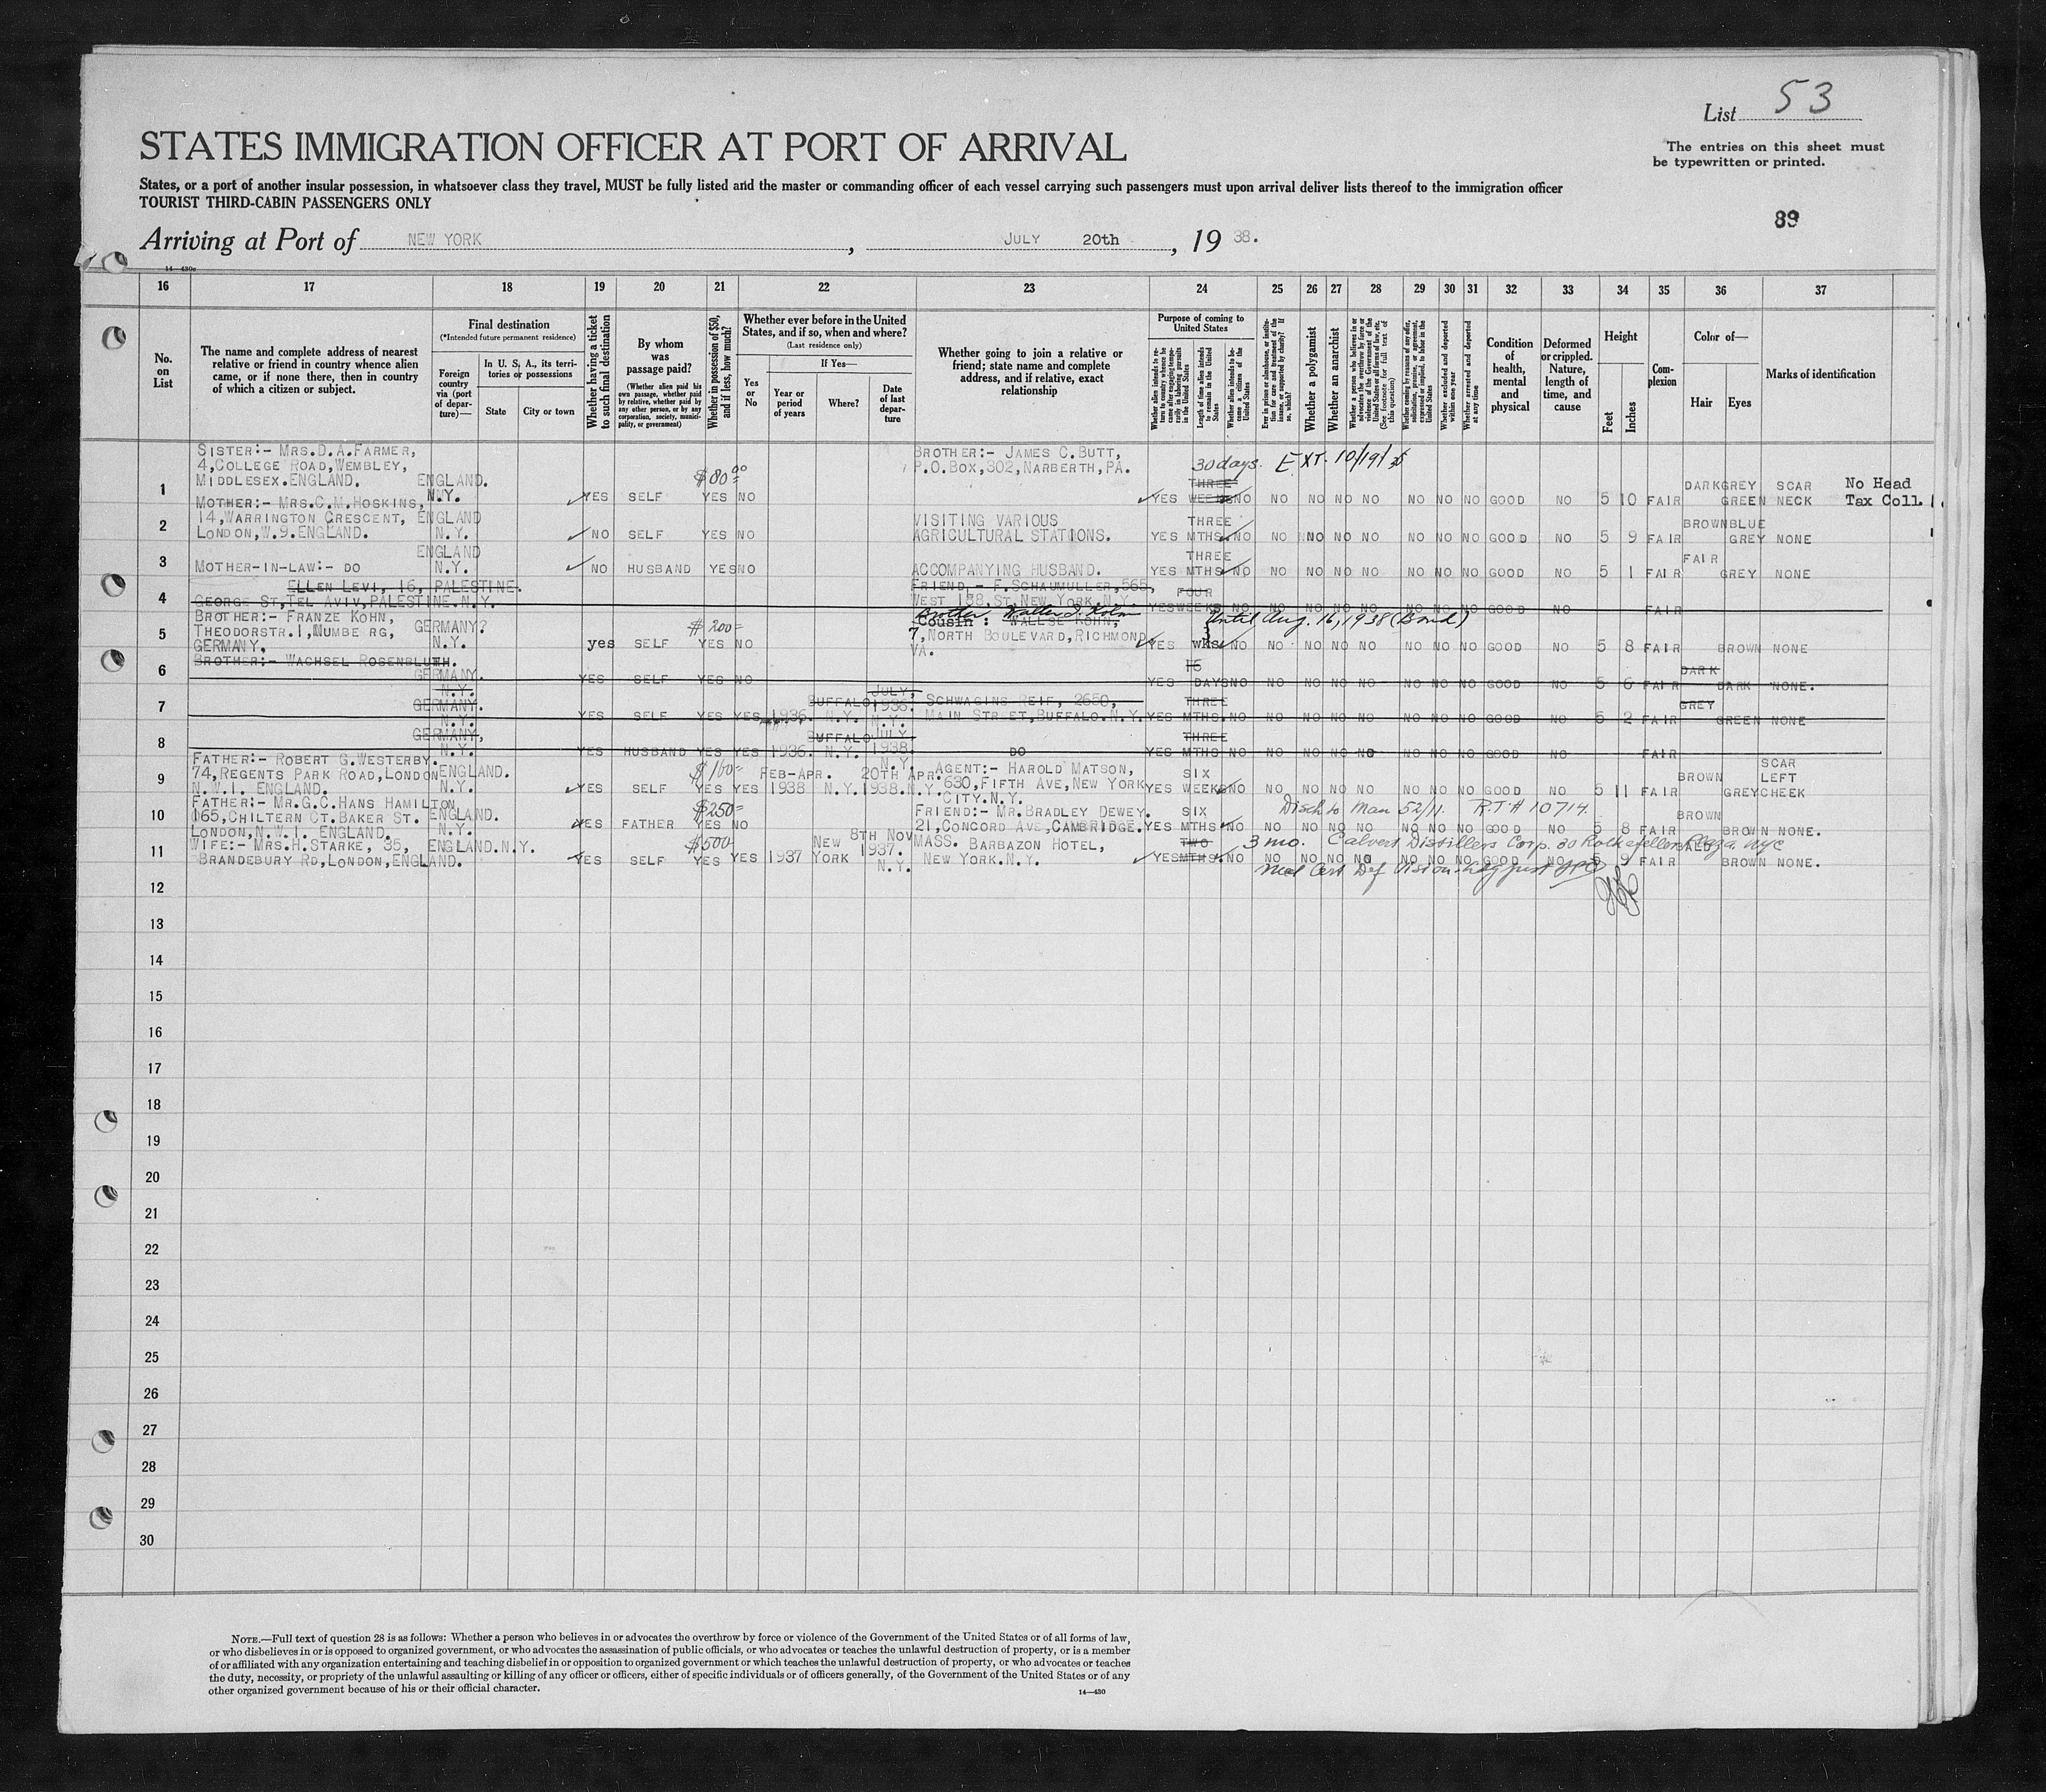 List 53
The entries on this sheet must
be typewritten or printed.
STATES IMMIGRATION OFFICER AT PORT OF ARRIVAL
States, or a port of another insular possession, in whatsoever class they travel, MUST be fully listed and the master or commanding officer of each vessel carrying such passengers must upon arrival deliver lists thereof to the immigration officer
TOURIST THIRD-CABIN PASSENGERS ONLY
89
Arriving at Port of NEW YORK, JULY 20th, 19 38.
14—430c
16 17 18 19 20 21 22 23 24 25 26 27 28 29 30 31 32 33 34 35 36 37
No. on List
The name and complete address of nearest
relative or friend in country whence alien
came, or if none there, then in country
of which a citizen or subject.
Final destination
(*Intended future permanent residence)
Foreign country via (port of departure)—
In U. S. A., its territories or possessions
State
City or town
Whether having a ticket to such final destination
By whom was passage paid?
(Whether alien paid his own passage, whether paid by relative, whether paid by any other person, or by any corporation, society, municipality, or government)
Whether in possession of $50, and if less, how much?
Whether ever before in the United States, and if so, when and where?
(Last residence only)
Yes or No
If Yes—
Year or period of years
Where?
Date of last departure
Whether going to join a relative or
friend; state name and complete
address, and if relative, exact
relationship
Purpose of coming to United States
Whether alien intends to return to country whence he came after engaging temporarily in laboring pursuits in the United States
Length of time alien intends to remain in the United States
Whether alien intends to become a citizen of the United States
Ever in prison or almshouse, or institution for care and treatment of the insane, or supported by charity? If so, which?
Whether a polygamist
Whether an anarchist
Whether a person who believes in or advocates the overthrow by force or violence of the Government of the United States or all forms of law, etc. (See footnote for full text of this question)
Whether coming by reasons of any offer, solicitation, promise, or agreement, expressed or implied, to labor in the United States
Whether excluded and deported within one year
Whether arrested and deported at any time
Condition of health, mental and physical
Deformed or crippled. Nature, length of time, and cause
Height
Feet
Inches
Complexion
Color of—
Hair
Eyes
Marks of identification
SISTER:- MRS.D.A.FARMER,
4,COLLEGE ROAD,WEMBLEY,
MIDDLESEX.ENGLAND. ENGLAND. N.Y.
1 YES SELF $80.00 YES NO BROTHER:- JAMES C.BUTT,
P.O.BOX,302,NARBERTH,PA.
30 days. EXT. 10/19/38
YES THREE WEEKS NO NO NO NO NO NO NO NO GOOD NO 5 10 FAIR DARK GREY GREEN SCAR NECK No Head
Tax Coll.
MOTHER:- MRS.C.M.HOSKINS,
14,WARRINGTON CRESCENT, ENGLAND
LONDON,W.9.ENGLAND. N.Y.
2 NO SELF YES NO VISITING VARIOUS
AGRICULTURAL STATIONS. YES THREE MTHS. NO NO NO NO NO NO NO NO GOOD NO 5 9 FAIR BROWN BLUE GREY NONE
3 MOTHER-IN-LAW:- DO ENGLAND N.Y. NO HUSBAND YES NO ACCOMPANYING HUSBAND. YES THREE MTHS NO NO NO NO NO NO NO NO GOOD NO 5 1 FAIR FAIR GREY NONE
4 ELLEN LEVI, 16, PALESTINE.
GEORGE ST,TEL AVIV,PALESTINE.N.Y.
FRIEND - F.SCHAUMULLER,565,
WEST 158,ST.NEW YORK.N.Y. YES FOUR WEEKS NO NO NO NO NO NO NO NO GOOD NO FAIR
BROTHER:- FRANZE KOHN,
THEODORSTR.1,NUMBERG,
GERMANY. GERMANY? N.Y.
5 yes SELF $200= YES NO Brother Walter J. Kohn
COUSIN: WALLSE KOHN,
7,NORTH BOULEVARD,RICHMOND
VA.
Until Aug. 16, 1938 (Bond)
YES 3 wks NO NO NO NO NO NO NO NO GOOD NO 5 8 FAIR BROWN NONE
6 BROTHER:- WACHSEL ROSENBLUTH.
GERMANY. N.Y. YES SELF YES NO YES 15 DAYS NO NO NO NO NO NO NO NO GOOD NO 5 6 FAIR DARK DARK NONE.
7 GERMANY. N.Y. YES SELF YES YES 1936 BUFFALO N.Y. JULY, 1936. N.Y. SCHWAGINS REIF, 2650,
MAIN STREET,BUFFALO.N.Y. YES THREE MTHS. NO NO NO NO NO NO NO NO GOOD NO 5 2 FAIR GREY GREEN NONE
8 GERMANY, N.Y. YES HUSBAND YES YES 1936. BUFFALO N.Y. JULY 1938. N.Y. DO YES THREE MTHS NO NO NO NO NO NO NO NO GOOD NO FAIR
FATHER:- ROBERT G.WESTERBY.
74,REGENTS PARK ROAD,LONDON ENGLAND.
N.W.I. ENGLAND. N.Y.
9 YES SELF $100= YES YES FEB-APR. 1938 N.Y. 20TH APR. 1938.N.Y. AGENT:- HAROLD MATSON,
630,FIFTH AVE,NEW YORK
CITY.N.Y. YES SIX WEEKS NO NO NO NO NO NO NO NO GOOD NO 5 11 FAIR BROWN GREY SCAR LEFT CHEEK
FATHER:- MR.G.C.HANS HAMILTON
065,CHILTERN CT.BAKER ST. ENGLAND.
LONDON,N.W.I. ENGLAND. N.Y.
10 YES FATHER $250= YES NO FRIEND:- MR.BRADLEY DEWEY.
21,CONCORD AVE,CAMBRIDGE.
MASS.
Disch to Man 52/11. R.T.# 10714
YES SIX MTHS NO NO NO NO NO NO NO NO GOOD NO 5 8 FAIR BROWN BROWN NONE.
WIFE:- MRS.H.STARKE, 35, ENGLAND.N.Y.
BRANDEBURY RD,LONDON,ENGLAND.
11 YES SELF $500= YES YES 1937 NEW YORK 8TH NOV 1937. N.Y. BARBAZON HOTEL,
NEW YORK.N.Y.
3 mo. Calvert Distillers Corp. 30 Rockefeller Plaza NYC
YES TWO MTHS. NO NO NO NO NO NO NO NO GOOD NO 5 9 FAIR BALD BROWN NONE.
Med Cert Def Vision
12
13
14
15
16
17
18
19
20
21
22
23
24
25
26
27
28
29
30
NOTE.—Full text of question 28 is as follows: Whether a person who believes in or advocates the overthrow by force or violence of the Government of the United States or of all forms of law,
or who disbelieves in or is opposed to organized government, or who advocates the assassination of public officials, or who advocates or teaches the unlawful destruction of property, or is a member
of or affiliated with any organization entertaining and teaching disbelief in or opposition to organized government or which teaches the unlawful destruction of property, or who advocates or teaches
the duty, necessity, or propriety of the unlawful assaulting or killing of any officer or officers, either of specific individuals or of officers generally, of the Government of the United States or of any
other organized government because of his or their official character.
14—430